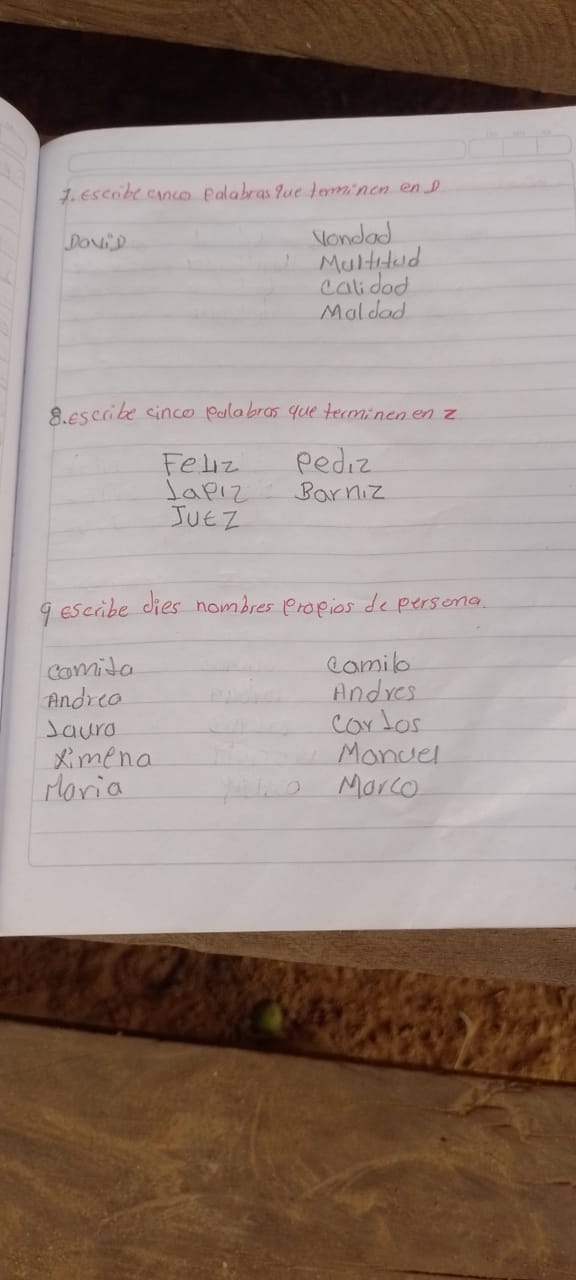 7. escribe cinco palabras que terminen en D
DaviD Vondad
Multitud
Calidad
Maldad
8. escribe cinco palabras que terminen en z
Feliz Pediz
Lapiz Barniz
Juez
9 escribe dies nombres propios de persona.
Comila Camilo
Andrea Andres
Laura Carlos
Ximena Manuel
Maria Marco